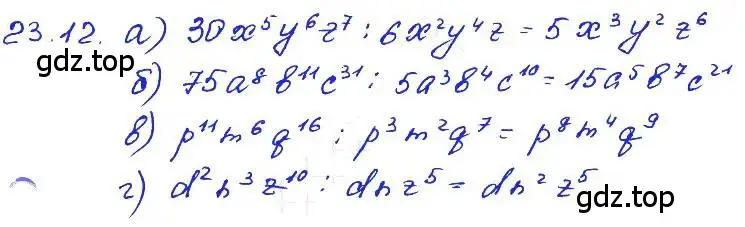 23.12. а) 30x⁵y⁶z⁷ : 6x²y⁴z = 5x³y²z⁶
б) 75a⁸b¹¹c³¹ : 5a³b⁴c¹⁰ = 15a⁵b⁷c²¹
в) p¹¹m⁶q¹⁶ : p³m²q⁷ = p⁸m⁴q⁹
gdz.top
г) d²n³z¹⁰ : dnz⁵ = dn²z⁵
gdz.top